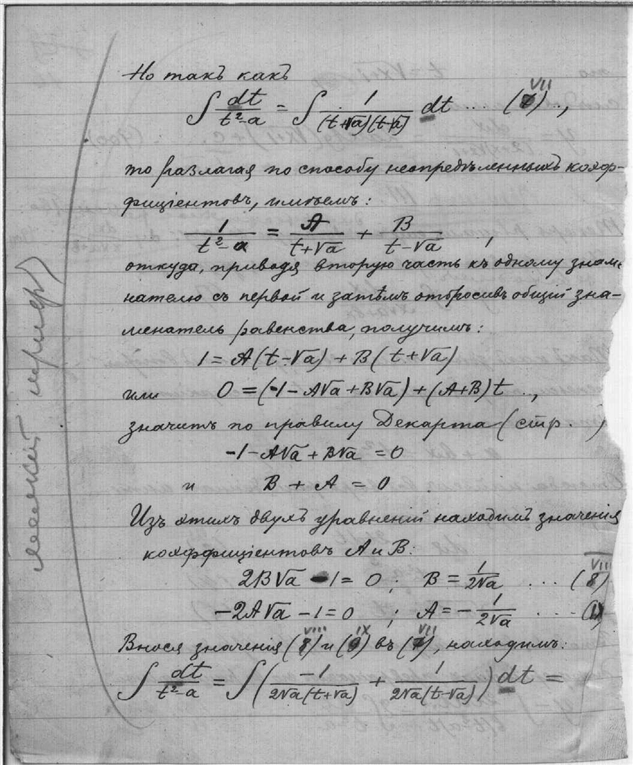 Но такъ какъ
∫ dt/(t²-a) = ∫ 1/((t+√a)(t-√a)) dt ... (VII),
то разлагая по способу неопредѣленныхъ коэф-
фиціентовъ, имѣемъ:
1/(t²-a) = A/(t+√a) + B/(t-√a) ,
откуда, приводя вторую часть къ одному знаме-
нателю съ первой и затѣмъ отбросивъ общій зна-
менатель равенства, получимъ:
1 = A(t-√a) + B(t+√a)
или 0 = (-1-A√a+B√a) + (A+B)t .,
значитъ по правилу Декарта (стр. )
-1-A√a+B√a = 0
и B + A = 0
Изъ этихъ двухъ уравненій находимъ значенія
коэффиціентовъ A и B:
2B√a - 1 = 0 ; B = 1/(2√a) ... (VIII)
-2A√a - 1 = 0 ; A = -1/(2√a) ...
Внося значенія (VIII) и (IX) въ (VII), находимъ:
∫ dt/(t²-a) = ∫ ( -1/(2√a(t+√a)) + 1/(2√a(t-√a)) ) dt =
мелкій шрифтъ